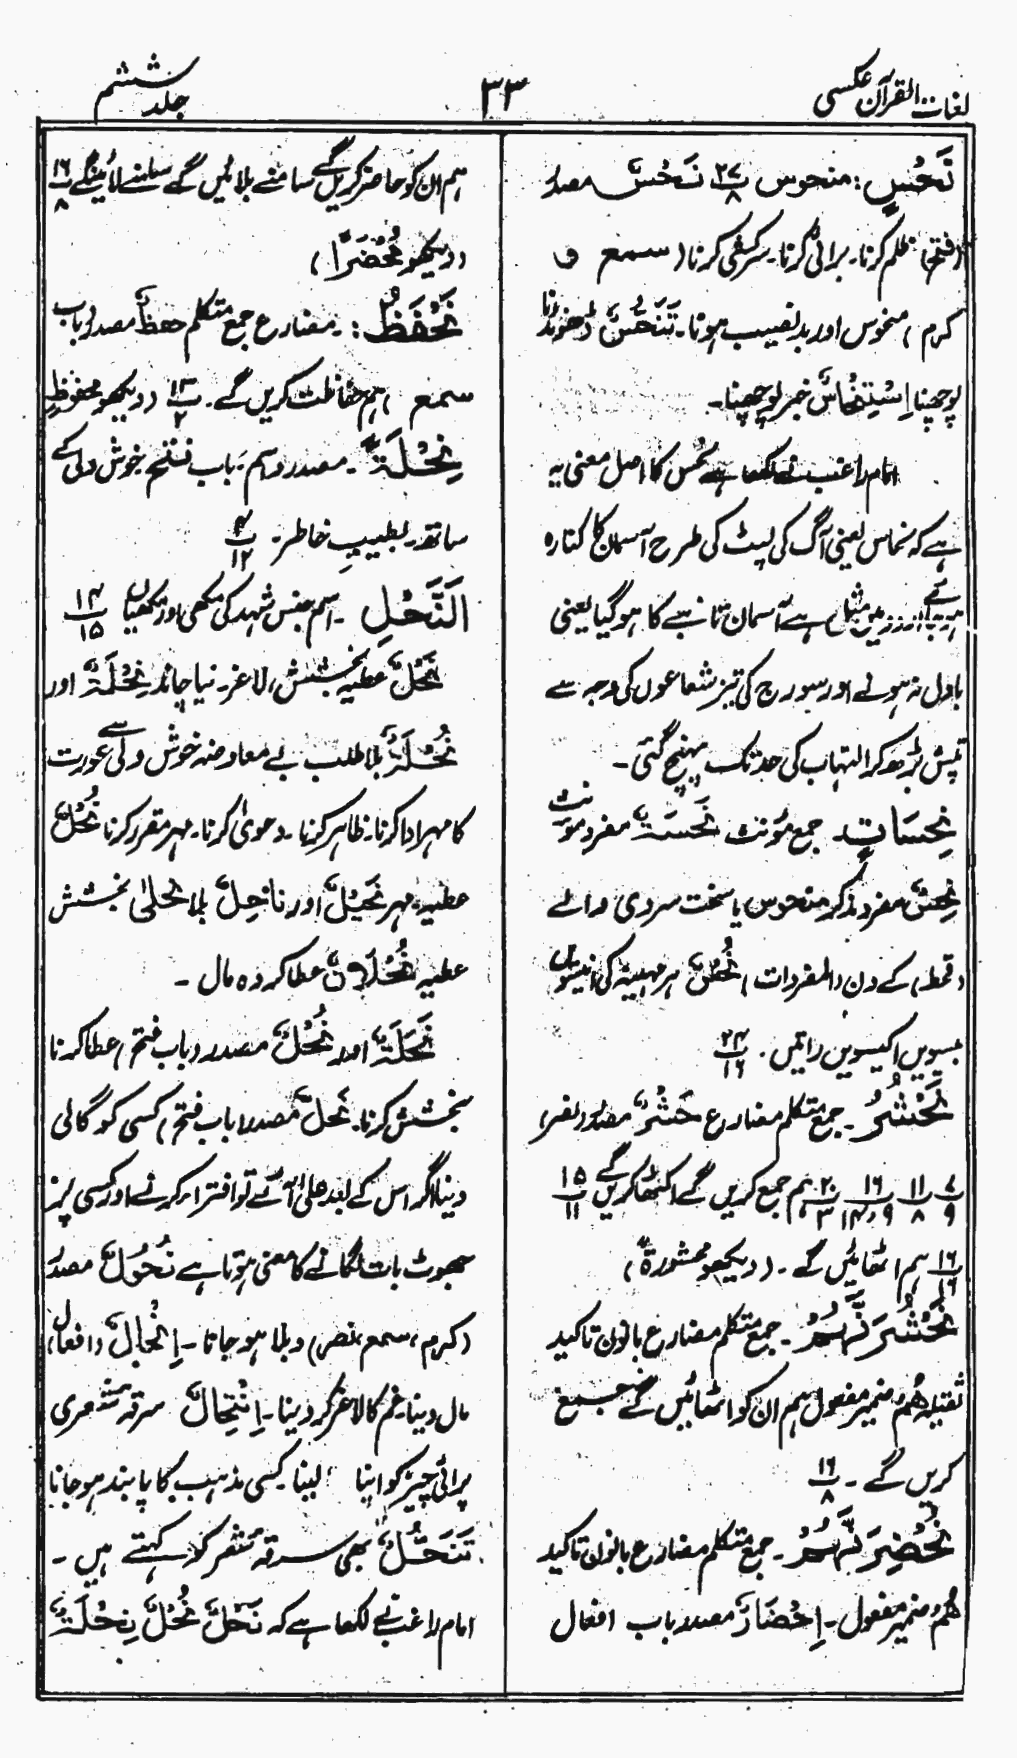 لغات القرآن عکسی
۳۳
جلد ششم
نَحْسٍ: منحوس ۲۷ پ ۸ نَحْسٌ مصدر
(فتح) ظلم کرنا۔ برائی کرنا۔ سرکشی کرنا (سمع و
کرم) منحوس اور بدنصیب ہونا۔ تَنَحُّسٌ ڈھونڈنا
پوچھنا اِسْتِنْحَاسٌ خبر پوچھنا۔
امام راغب نے لکھا ہے نحس کا اصل معنی یہ
ہے کہ نحاس یعنی آگ کی لپٹ کی طرح آسمان کا کنارہ
ہے آسمان تانبے کا ہوگیا یعنی
بادل نہ ہونے اور سورج کی تیز شعاعوں کی وجہ سے
تپش بڑھ کر التہاب کی حد تک پہنچ گئی۔
نَحِسَاتٍ جمع مؤنث نَحْسَةٌ مفرد مؤنث
نَحِسٌ مفرد مذکر منحوس یا سخت سردی والے
(قحط) کے دن (المفردات) نُحُسٌ ہر مہینہ کی انیسویں
بیسویں اکیسویں راتیں۔ ۲۴ پ ۱۶
نَحْشُرُ۔ جمع متکلم مضارع حَشْرٌ مصدر (نصر)
ہم جمع کریں گے اکٹھا کریں گے ۱۵/۱۱ ۷/۹ ۱۱/۸ ۱۶/۱۴،۹ ۲۰/۳
۱۶/۱۶ ہم اٹھائیں گے۔ (دیکھو محشورۃً)
نَحْشُرَنَّهُمْ۔ جمع متکلم مضارع بانون تاکید
ثقیلہ ھُمْ ضمیر مفعول ہم ان کو اٹھائیں گے جمع
کریں گے۔ ۱۶ پ ۸
نُحْضِرَنَّهُمْ۔ جمع متکلم مضارع بانون تاکید
ھُمْ ضمیر مفعول۔ اِحْضَارٌ مصدر باب افعال
ہم ان کو حاضر کریں گے سامنے بلائیں گے سامنے لائینگے ۱۶ پ ۸
(دیکھو مُحْضَرًا)
نَحْفَظُ:۔ مضارع جمع متکلم حفظٌ مصدر (باب
سمع) ہم حفاظت کریں گے۔ ۱۳ پ ۲ (دیکھو محفوظٍ)
نِحْلَةً۔ مصدر و اسم۔ باب فتح خوش دلی کے
ساتھ۔ بطیبِ خاطر۔ ۴ پ ۱۲
النَّحْلِ۔ اسم جنس شہد کی مکھی اور مکھیاں ۱۴/۱۵
نُحْلٌ عطیہ بخشش، لاغر۔ نیا چاند نِحْلَةٌ اور
نُحْلَةٌ بلا طلب بے معاوضہ خوش دلی سے عورت
کا مہر ادا کرنا۔ ظاہر کرنا۔ دعویٰ کرنا۔ مہر مقرر کرنا نُحْلٌ
عطیہ۔ مہر نَحِیْلٌ اور نَاحِلٌ بلا نحلیٰ بخشش
عطیہ نُحْلَانٌ عطا کردہ مال۔
نَحْلَةٌ اور نُحْلٌ مصدر (باب فتح) عطا کرنا
بخشش کرنا۔ نَحْلٌ مصدر (باب فتح) کسی کو گالی
دینا اگر اس کے بعد علیٰ آئے تو افترا کرنے اور کسی پر
جھوٹ بات لگانے کا معنی ہوتا ہے نُحُوْلٌ مصدر
(کرم، سمع، نصر) دبلا ہو جانا۔ اِنْحَالٌ (افعال)
مال دینا۔ غم کا لاغر کر دینا۔ اِنْتِحَالٌ سرقہ شعری
پرائی چیز کو اپنا لینا۔ کسی مذہب کا پابند ہو جانا
تَنَحُّلٌ بھی سرقہ شعر کو کہتے ہیں۔
امام راغب نے لکھا ہے کہ نَحْلٌ نُحْلٌ نِحْلَةٌ